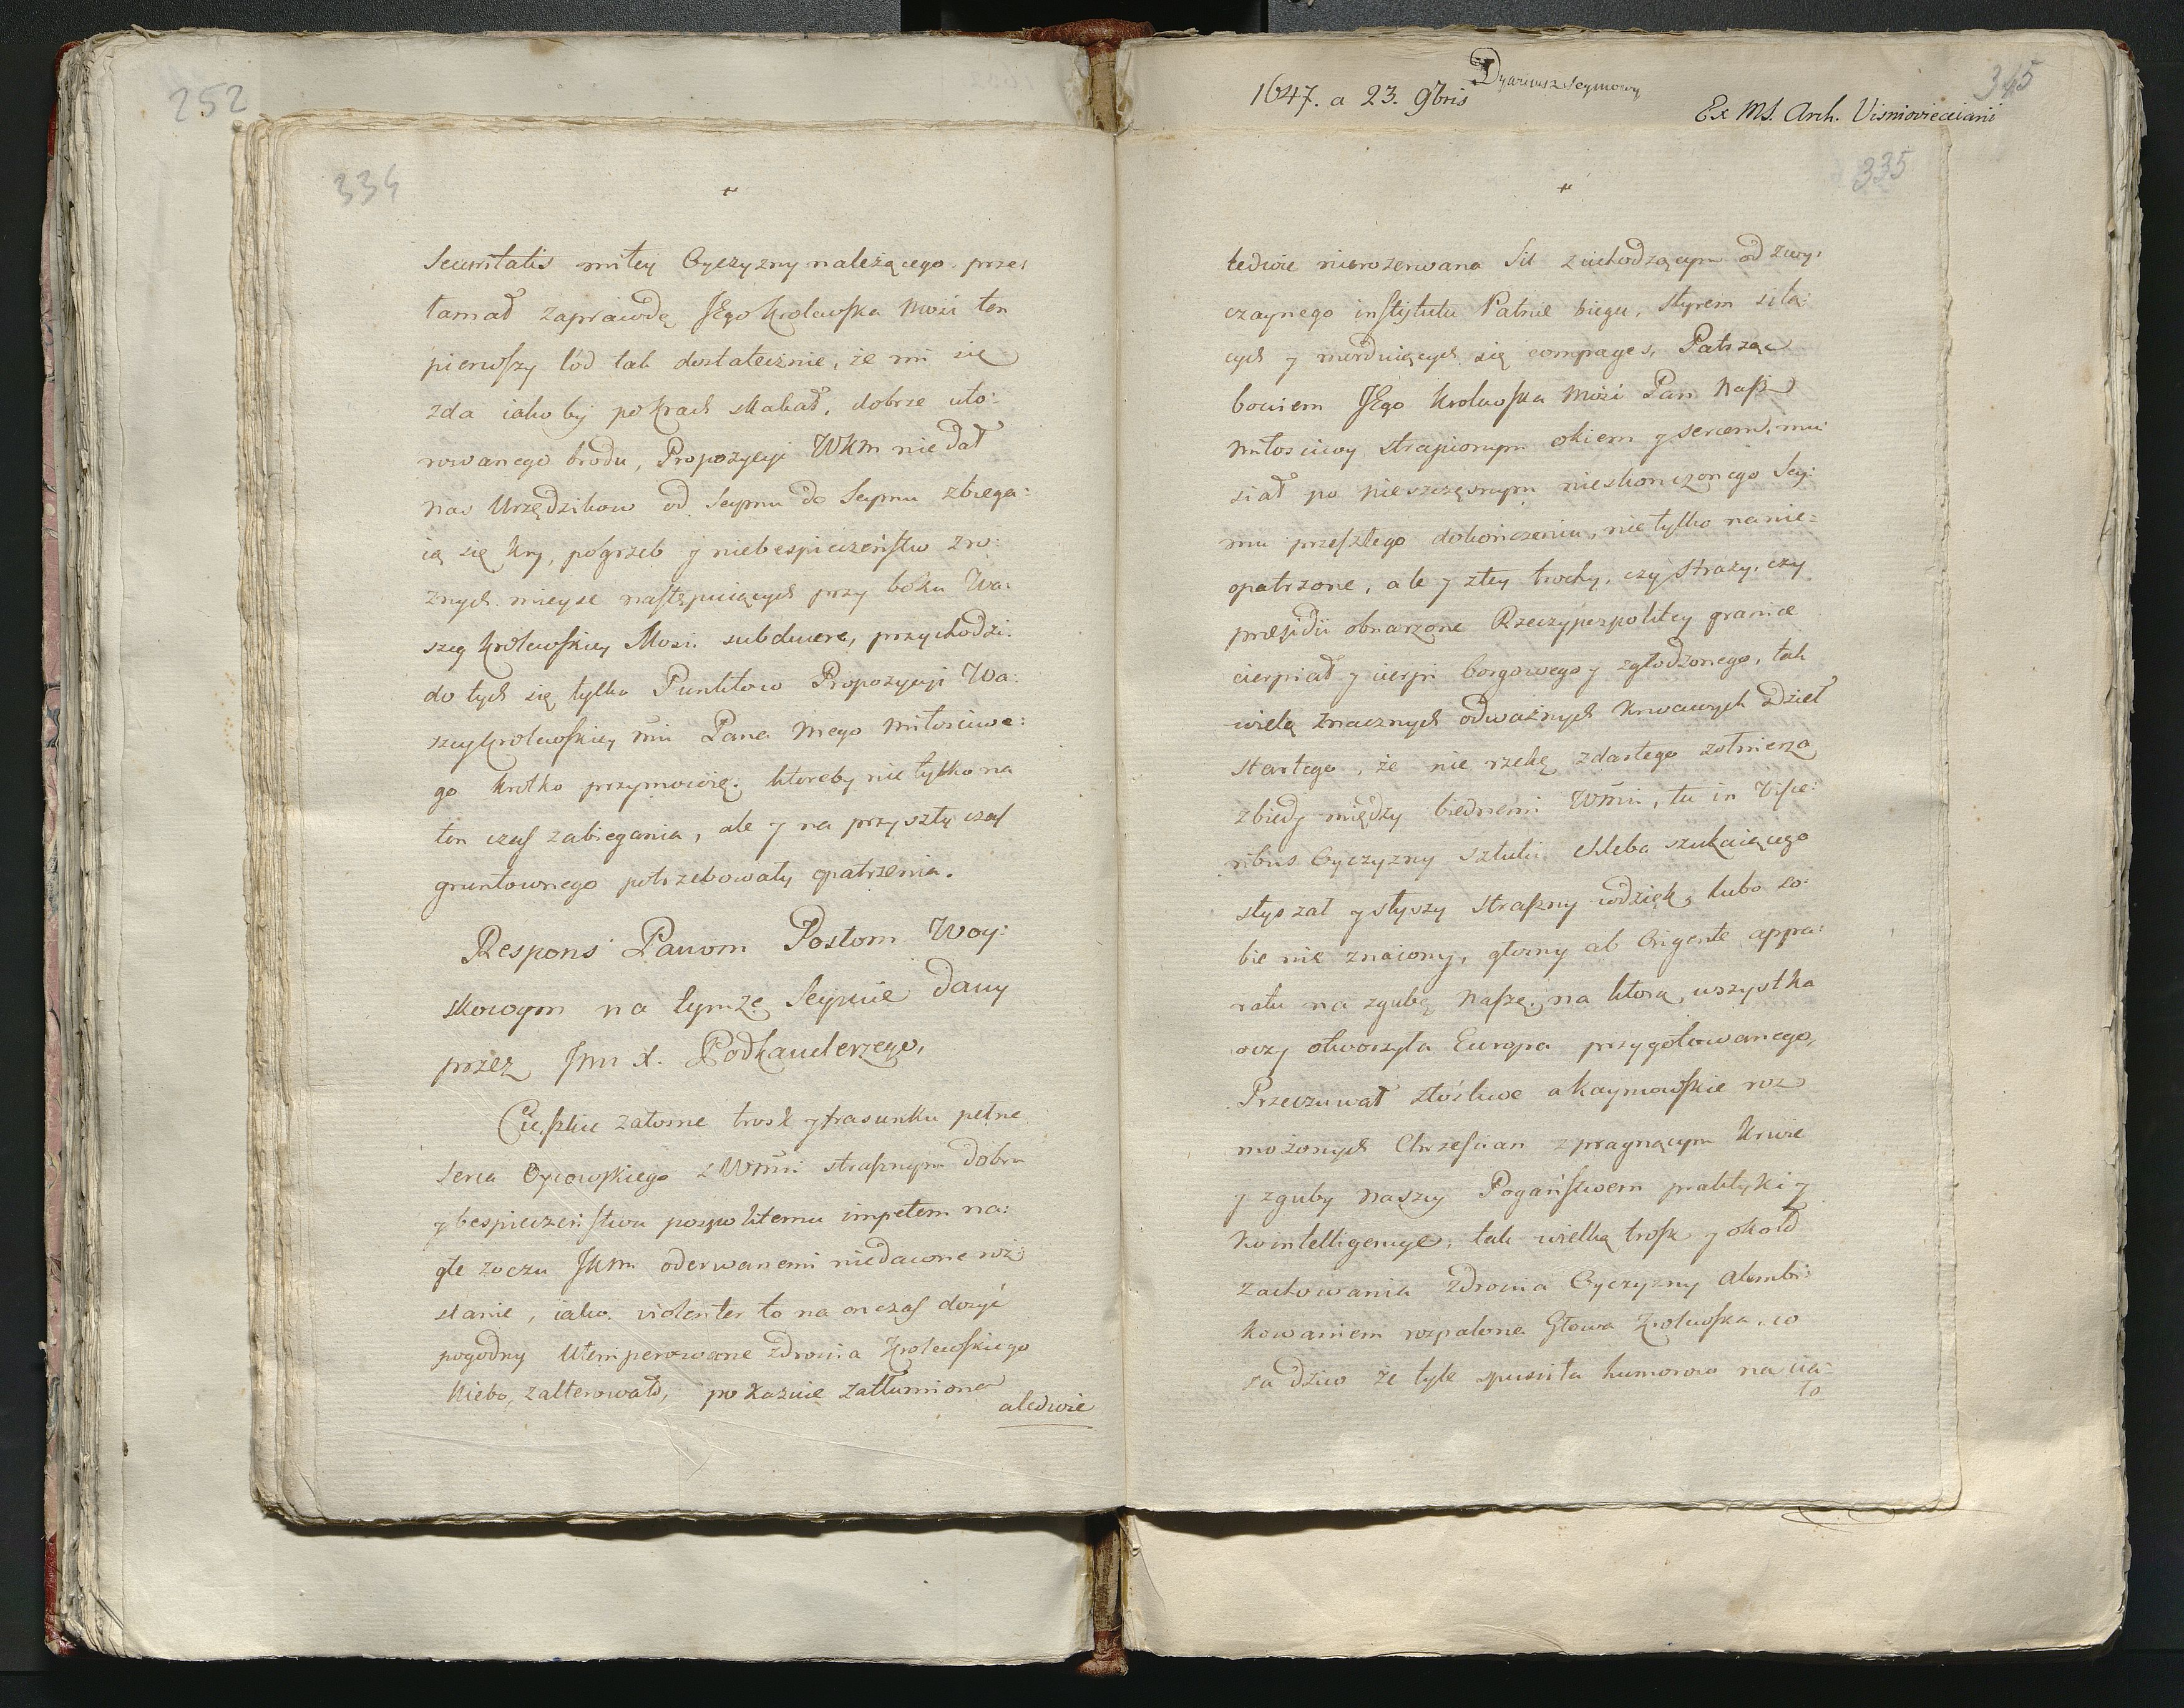 252
334
Securitatis miłey Oyczyzny należącego. prze:
łamał zaprawdę JEgo Krolewska Mość ten
pierwszy lód tak dostatecznie, że mi się
zda iako by po Krach skakał, dobrze uto:
rowanego brodu, Propozycyi WKM nie dał
nas Urzędzikow od Seymu do Seymu zbiega:
ią się kry, pogrzeb y niebespieczeństwo zno:
znych mieysc następuiących przy boku Wa:
szey Krolewskiey Mosci subducere, przychodzi.
do tych się tylko Punktow Propozycyi Wa:
szey Krolewskiey Mci Pana mego Miłosciwe:
go krotko przymowię. ktoreby nie tylko na
ten czas zabiegania, ale y na przyszły czas
gruntownego potrzebowały opatrzenia.
Respons Panom Posłom Woy:
skowym na tymże Seymie dany
przez Jmi X. Podkanclerzego.
Cięszkie załosne trosk y frasunku pełne
serca Oycowskiego z Wmci strasznym dobru
y bespieczeństwu pospolitemu impetem na:
głe z oczu JKM oderwanemi niedawone roz:
stanie, iako violenter to na on czas dosyć
pogodny utemperowane zdrowia Krolewskiego
Niebo, zalterowało, pokazuie zatłumiona
aledwie
1647. a 23. 9bris
Dyariusz Seymowy
Ex MS. Arch. Visniovieciani
345
335
ledwie nierozerwana Sił z uchodzącym od zwy:
czaynego instytutu Patnie biegu, styrem siła:
cych y mordiuiących się compages, Patrząc
bowiem JEgo Krolewska Mość Pan Nasz
Miłosciwy strapionym okiem y sercem, mu
siał po nieszczęsnym nieskonczonego Sey:
mu przeszłego dokończeniu, nie tylko na nie:
opatrzone, ale y złey trochy, czy straży, czy
præsidii obnarzone Rzeczypospolitey granice
cierpiał y cierpi borgowego y zgłodzonego, tak
wielą znacznych odważnych krwawych dzieł
startego, że nie rzekę zdartego żołnierza
zbiedy między biednemi Wmci, tu in Visce:
ribus Oyczyzny sztuki chleba szukaiącego
słyszał y słyszy straszny wdzięk, lubo so:
bie nie znaiomy, głosny ab Origente appa:
ratu na zgubę naszę, na ktorą wszystka
oczy otworzyła Europa przygotowanego,
Przeczuwał złośliwe a kaymowskie roz
możonych Chrzescian z pragnącym krwie
y zguby naszey Pogaństwem praktyki y
kointelligencye, tak wielką trosk y około
zachowania zdrowia Oyczyzny alembi:
kowaniem rozpalona Głowa Krolewska. co
za dziw że tyle spusciła humorow na cia:
ło